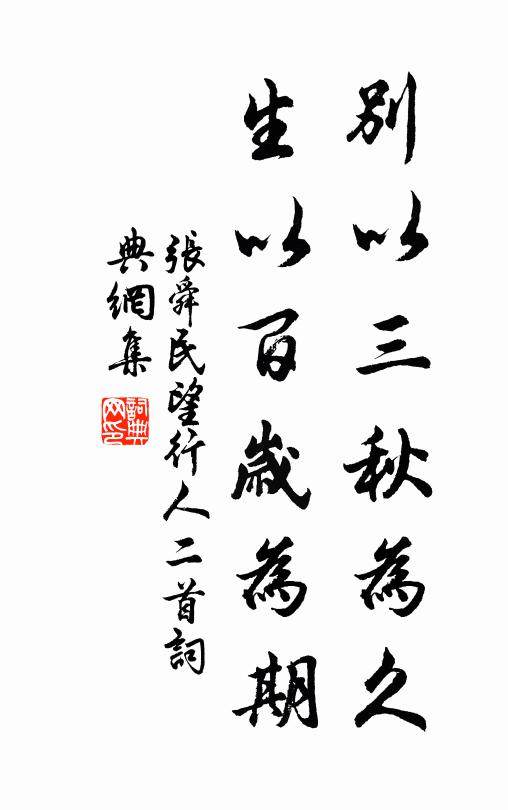 別以三秋為久
生以百歲為期
張舜民望行人二首詞
典網集
詞典網印